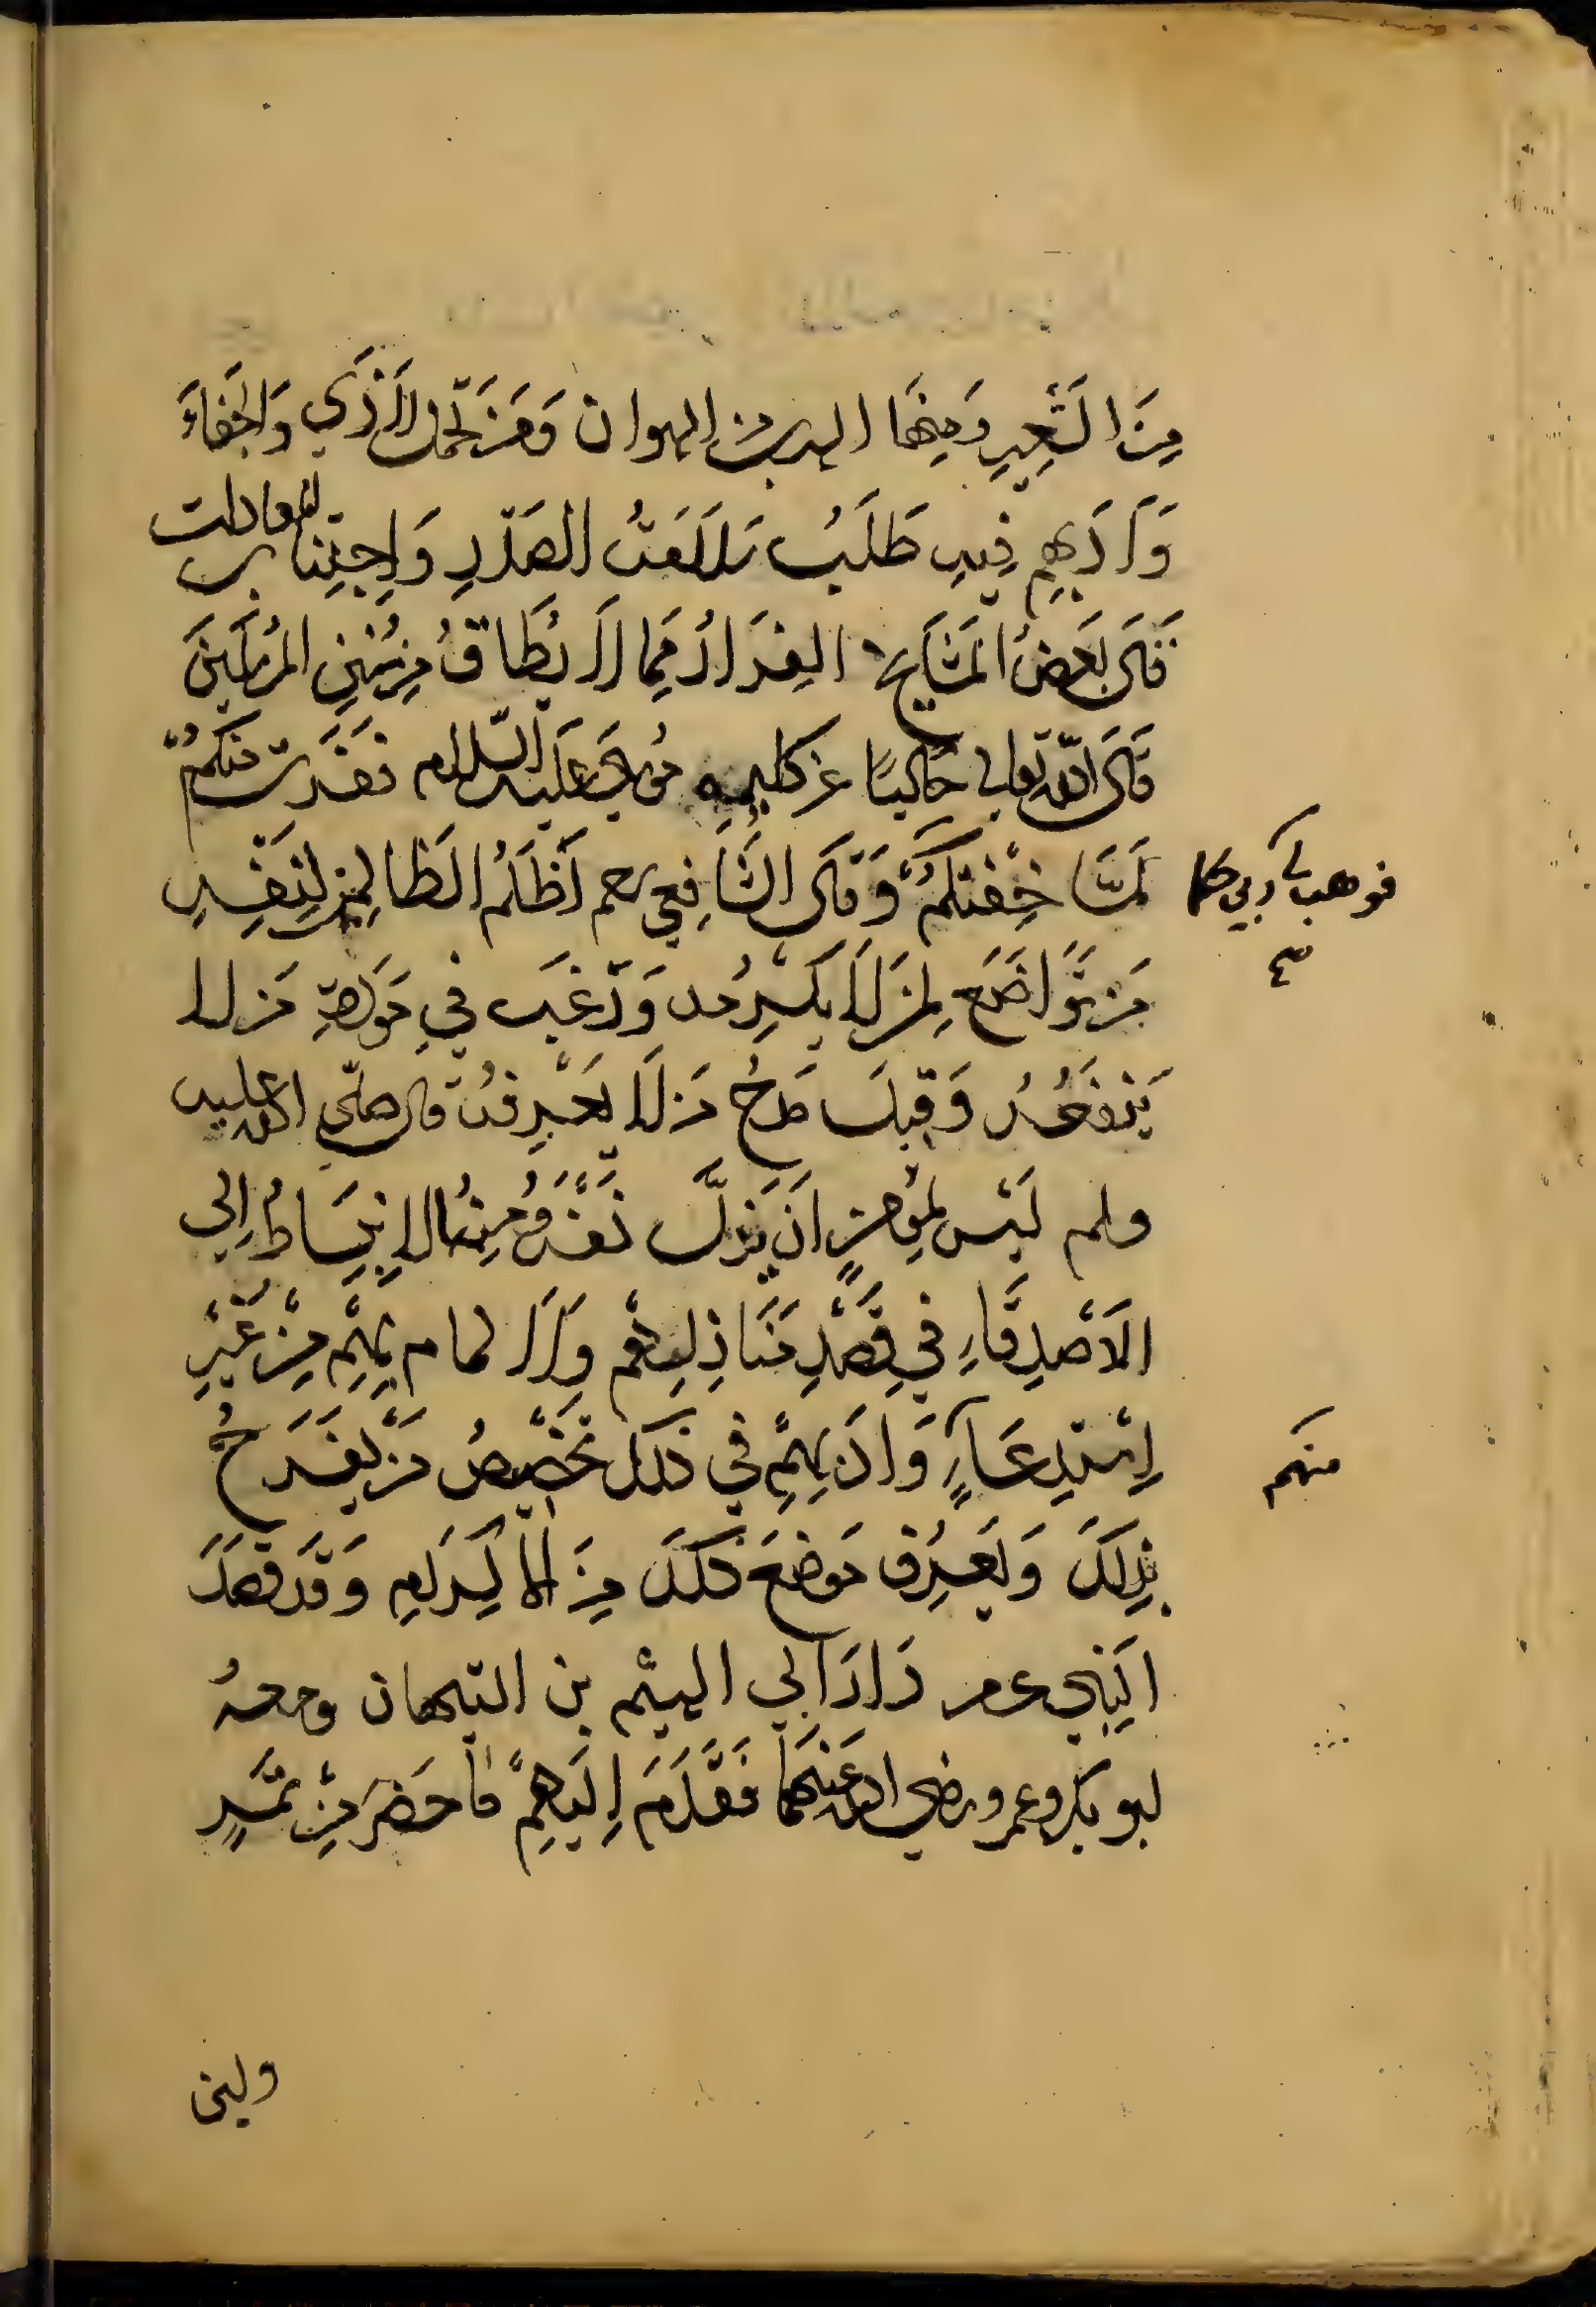 مِنَ الشَّعِيرِ وَمِنْهَا الهرب من الهوان وَمَنْ تحمّل الاَذَي وَالجَفاءَ
وَآدَابِهِم فِيهِ طَلَبُ سَلَامَةُ الصَّدْرِ وَاجتِنَاب المعادات
فَقَالَ بَعضُ المَشَايخِ الفِرَارُ مِمّا لَا يُطَاقُ مِن سُنَنِ المُرسَلِينَ
قَالَ اللّٰه تعالي حَاكيًا عَن كليمِهِ مُوسَي عَلَيهِ السّلام فَفَرَرتُ مِنكُم
لَمَّا خِفْتُكُم وَقَالَ الشَّافِعي رحم اَظْلَمُ الظَّالِمِينَ لِنَفْسِهِ
فوهب لي ربي حكما
صح
مَن تَوَاضَعَ لِمَن لَا يُكْرِمُه وَرَغبَ في مَوَدَّةِ مَن لا
يَنفَعُهُ وَقَبِلَ مَدحَ مَن لا يَعْرِفُهُ قال صلّي الله عليه
ولم لَيْسَ لِمُؤمِنٍ اَن يَذِلَّ نَفْسَهُ وَمِنهُا الاِنبِسَاطُ اِلي
الاَصْدِقَاءِ في قَصْدِ مَنَازِلِهِم وَالالمام بِهِم مِنْ غَيْرِ
اِستِدعَآءٍ وَادَبهِم في ذَلكَ تَخْصِيصُ مَن يَفرَحُ
منهم
بذِلكَ وَيَعرِف مَوضعَ ذلكَ مِنَ الاكرَامِ وَقَد قصَدَ
النبي عم دَارَ ابي الهيثم بن التيهان ومعهُ
ابو بكر وعمر رضي الله عَنهمَا فَقَدَّمَ اِلَيهِم مَا حَضَرَ مِنْ تَمْرٍ
ولبن